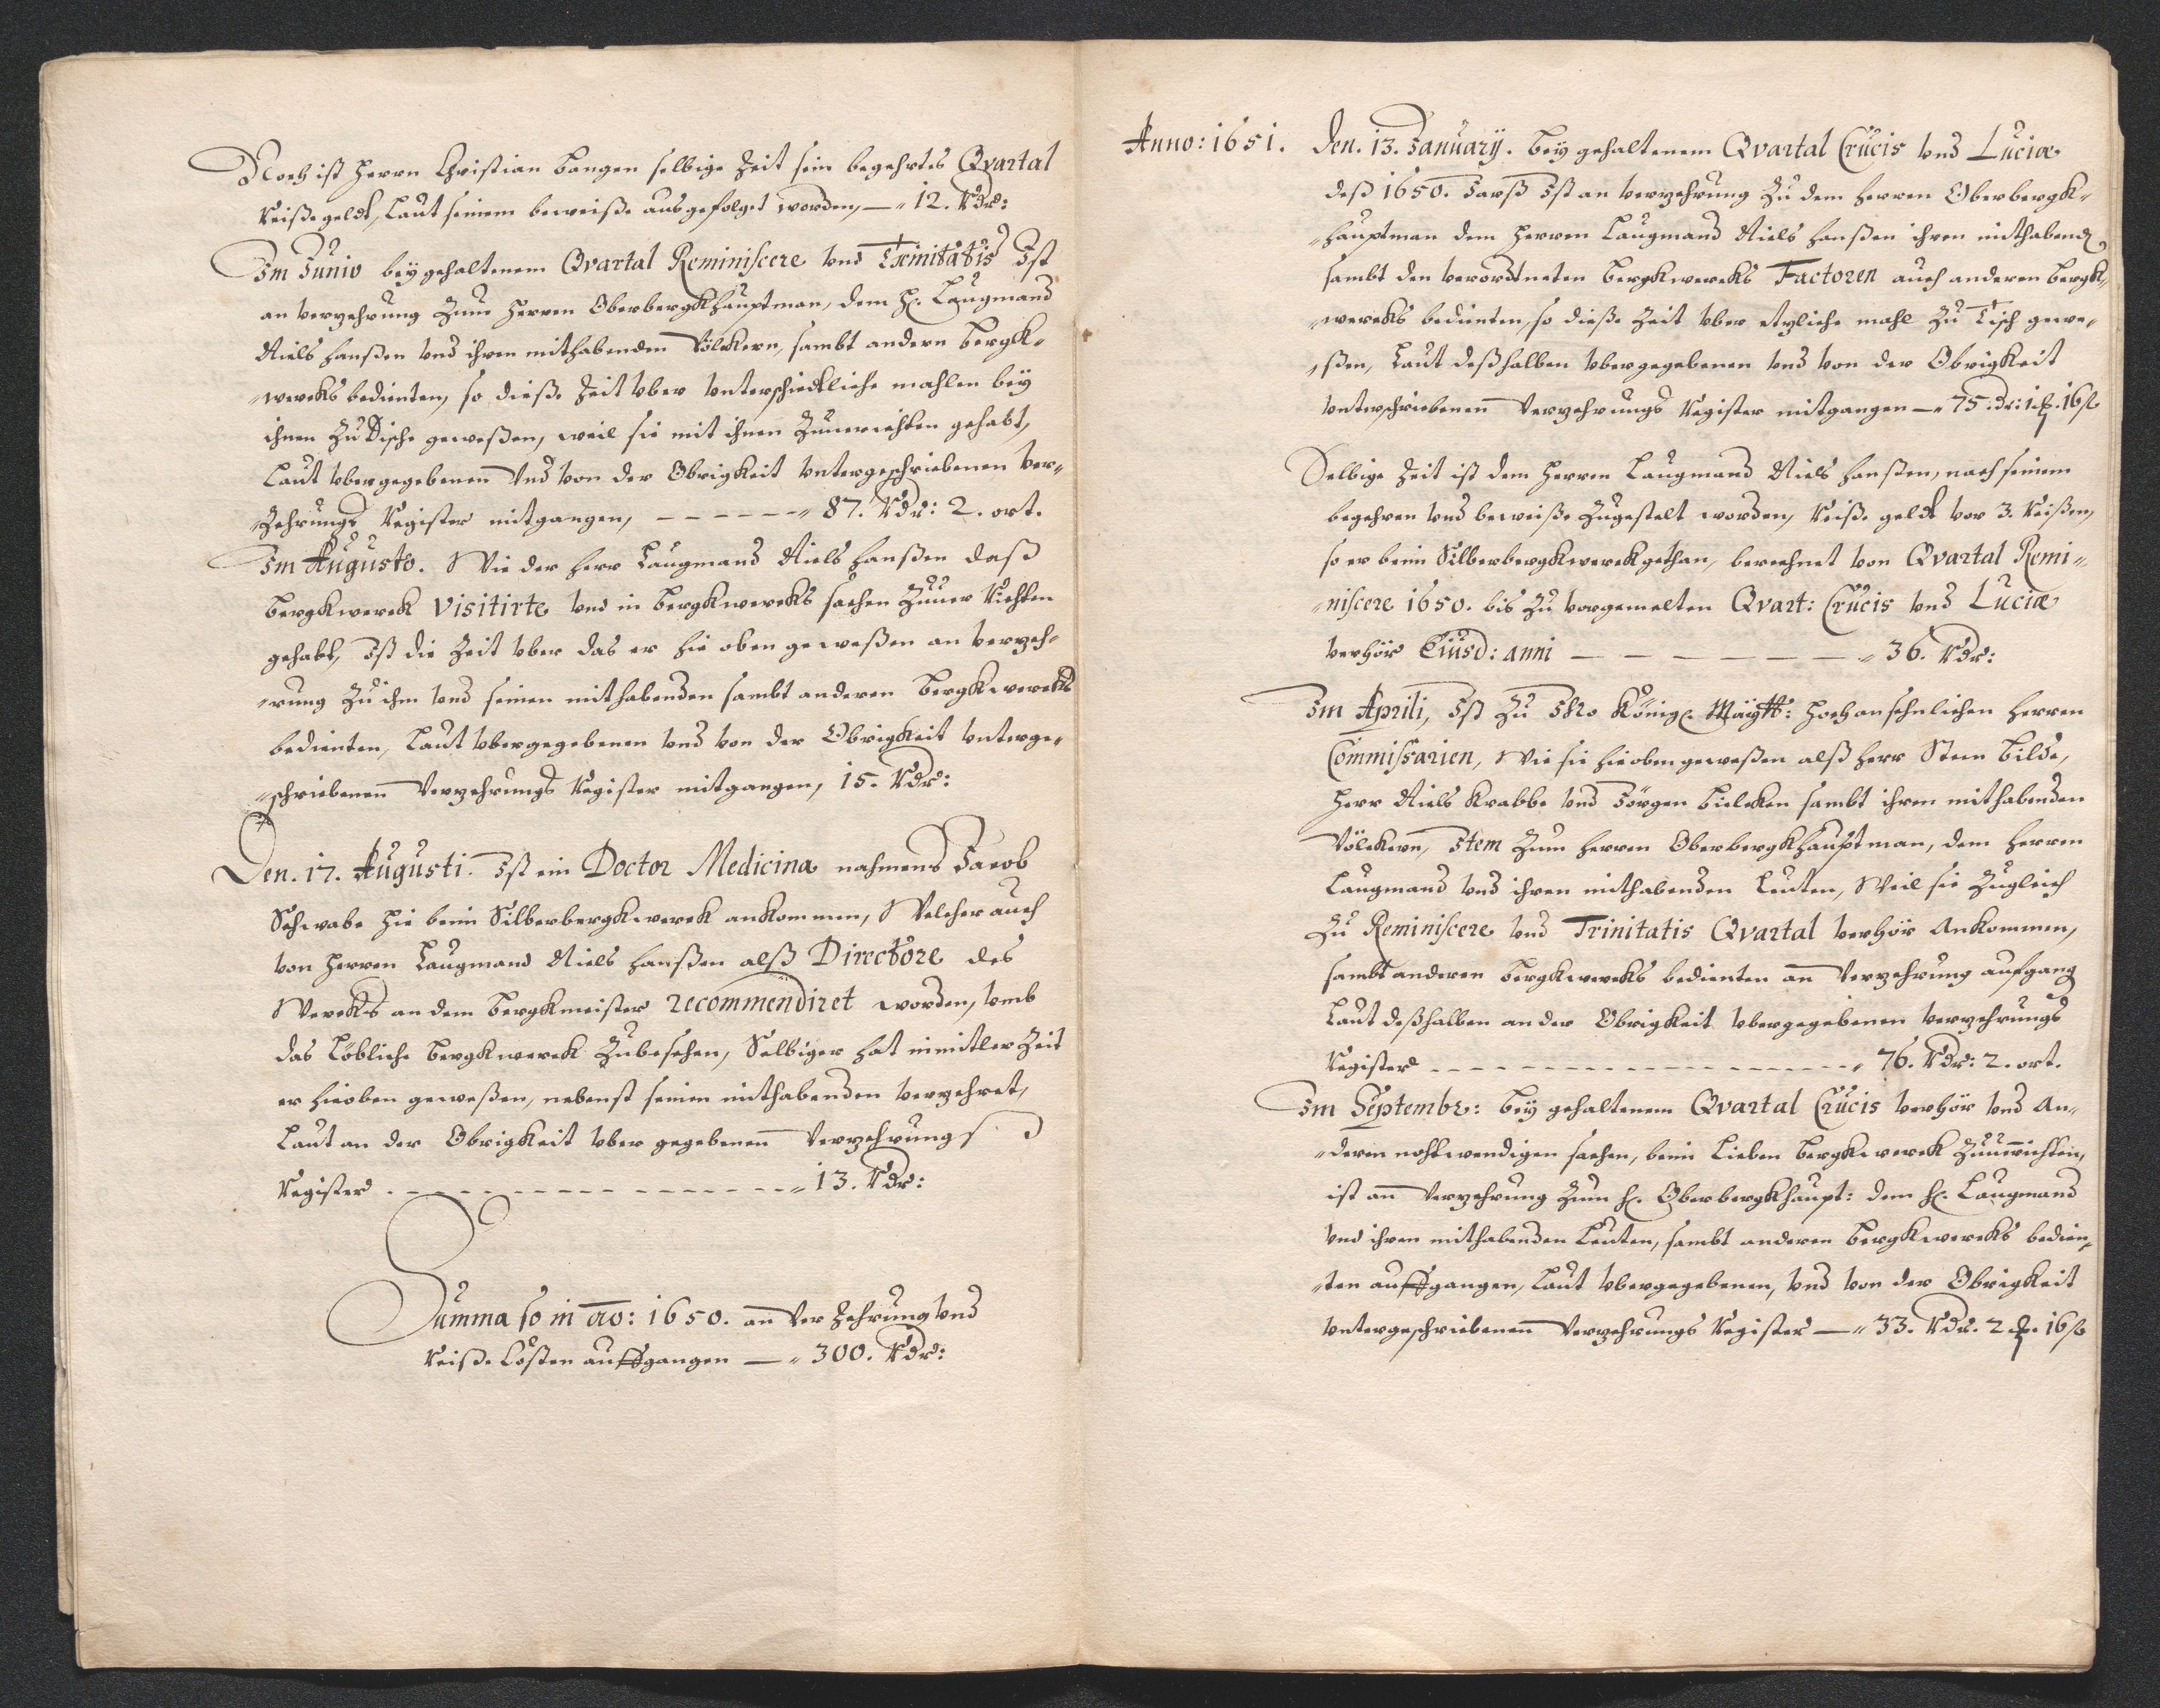 Noch ist Herrn Christian Bangen selbige Zeit sein begehrtes Qvartal
Reiße geldt, Laut seinem beweiße ausgefolget worden, — 12. Rdr:
Im Junio bey gehaltenem Qvartal Reminiscere vnd Trinitatis Ist
an verzehrung Zum Herren Oberbergkhauptman, dem H: Laugmand
Niels Hanßen vnd ihren mithabenden Völckern, sambt andern Bergk-
wercks bedienten, so dieße Zeit vber vnterschiedtliche mahlen bey
ihnen Zu Tische geweßen, weil sie mit ihnen Zuuerrichten gehabt,
Laut vbergegebenen Vnd von der Obrigkeit vntergeschriebenen Ver-
Zehrungs Register mitgangen, – – – – – – 87. Rdr: 2. ort.
Im Augusto. Wie der Herr Laugmand Niels Hanßen daß
Bergkwerck Visitirte vnd in Bergkwercks sachen Zuuer Richten
gehabt, Ist die Zeit vber das er hie oben geweßen an verzeh-
rung Zu ihm vnd seinen mithabenden sambt anderen Bergkwercks
bedienten, Laut vbergegebenen vnd von der Obrigkeit vnterge-
schriebenen Verzehrungs Register mitgangen, 15. Rdr:
Den. 17. Augusti. Ist ein Doctor Medicina nahmens Jacob
Schwabe hie beim Silberbergkwerck ankommen, Welcher auch
von Herren Laugmand Niels Hanßen alß Directore des
Wercks an dem Bergkmeister recommendiret worden, vmb
das Löbliche Bergkwerck Zubesehen, Selbiger hat inmitler Zeit
er hieoben geweßen, nebenst seinen mithabenden verzehret,
Laut an der Obrigkeit vber gegebenen Verzehrungs
Register – – – – – – – – – – – – – – 13. Rdr:
Summa so in ao: 1650. an Ver Zehrung vnd
Reiße Costen auffgangen — 300. Rdr:
Anno: 1651. Den. 13. January. bey gehaltenem Qvartal Crucis vnd Luciæ
deß 1650. Jarß Ist an verzehrung Zu dem Herren Oberbergk-
hauptman dem Herren Laugmand Niels Hanßen ihren mithabend
sambt den verordtneten Bergkwercks Factoren auch anderen Bergk-
wercks bedienten, so dieße Zeit vber etzliche mahl Zu Tisch gewe-
ßen, Laut deßhalben vbergegebenen vnd von der Obrigkeit
vnterschriebenen Verzehrungs Register mitgangen — 75. dr: 1 ƒ. 16 ß
Selbige Zeit ist dem Herren Laugmand Niels Hanßen, nach seinem
begehren vnd beweiße Zugestelt worden, Reiße geldt vor 3. Reißen,
so er beim Silberbergkwerck gethan, berechnet von Qvartal Remi-
niscere 1650. bis Zu vorgemelten Qvart: Crucis vnd Luciæ
verhör Eiusd: anni — — — — — — — 36. Rdr:
Im Aprili, Ist Zu Ihro Königl: Maytt: Hochansehnlichen Herren
Commissarien, Wie sie hieoben geweßen alß Herr Steen Bilde,
Herr Niels Krabbe vnd Jörgen Bielcken sambt ihren mithabenden
Völckern, Item Zum Herren Oberbergkhauptman, dem Herren
Laugmand vnd ihren mithabenden Leuten, Weil sie Zugleich
Zu Reminiscere vnd Trinitatis Qvartal verhör Ankommen,
sambt anderen Bergkwercks bedienten an Verzehrung aufgang
Laut deßhalben an der Obrigkeit vbergegebenen verzehrungs
Register – – – – – – – – – – – – – – 76. Rdr: 2. ort.
Im Septembr: bey gehaltenem Qvartal Crucis verhör vnd An-
deren nohtwendigen sachen, beim Lieben Bergkwerck Zuuerrichten,
ist an Verzehrung Zum H: Oberbergkhaupt: dem H: Laugmand
Vnd ihren mithabenden Leuten, sambt anderen Bergkwercks bedien-
ten auffgangen, Laut vbergegebenen, vnd von der Obrigkeit
vntergeschriebenen Verzehrungs Register — 33. Rdr. 2 ƒ. 16 ß